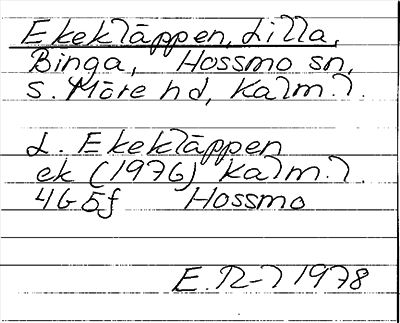 Ekekläppen, Lilla,
Binga, Hossmo sn,
S. Möre hd, Kalm. l.
L. Ekekläppen
ek (1976) Kalm. l.
4G5f Hossmo
E. N-l 1978